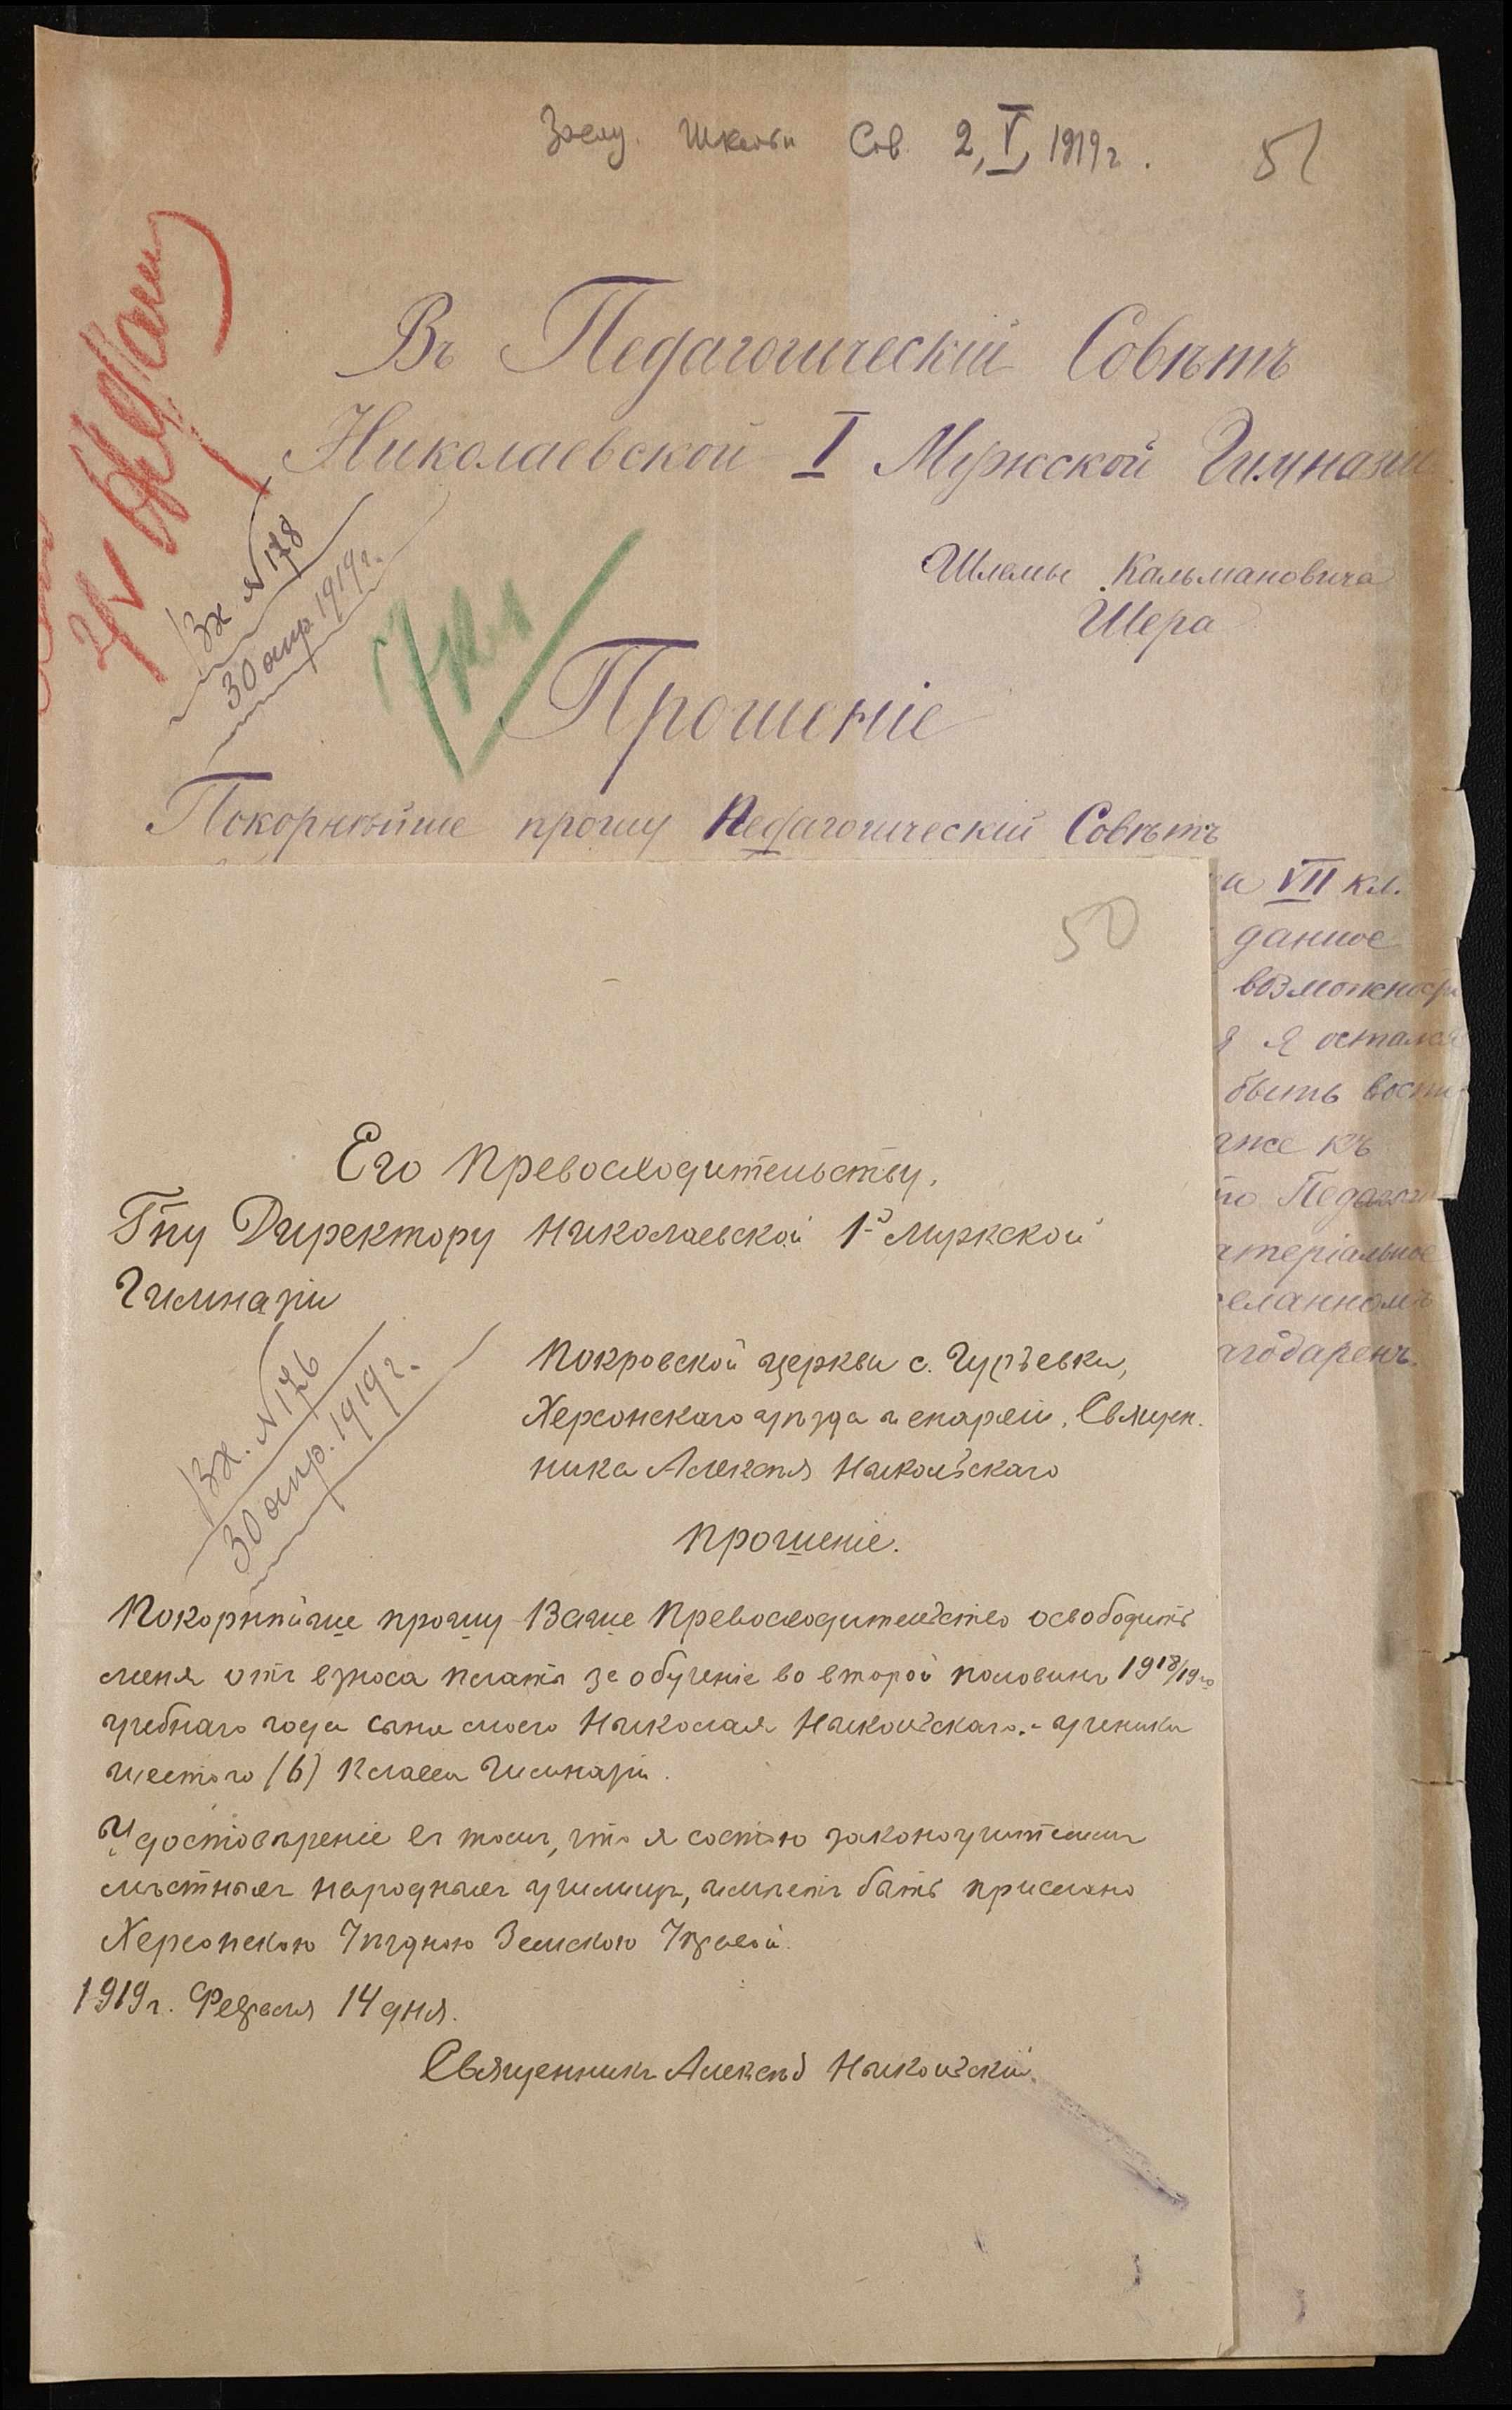 Сов. 2, V, 1919 г.
51
Въ Педагогическій Совѣтъ
Николаевской I Мужской Гимназіи
Вх №178
30 апр. 1919 г.
Шлемы Кальмановича
Шера
Прошеніе
Покорнѣйше прошу Педагогическій Совѣтъ
VII кл.
данное
возможности
я остался
быть
къ
50
Его Превосходительству,
Г-ну Директору Николаевской 1-й мужской
Гимназіи
Вх. №176
30 апр. 1919 г.
Покровской церкви с. Гурьевки,
Херсонскаго уѣзда и епархіи, Священ-
ника Алексѣя Никольскаго
прошеніе.
Покорнѣйше прошу Ваше Превосходительство освободить
меня отъ взноса платы за обученіе во второй половинѣ 1918/19го
учебнаго года сына моего Николая Никольскаго - ученика
шестого (6) класса Гимназіи.
Удостовѣреніе въ томъ, что я состою законоучителемъ
мѣстныхъ народныхъ училищъ, имѣетъ быть прислано
Херсонскою Уѣздною Земскою Управой.
1919 г. Февраля 14 дня.
Священникъ Алексѣй Никольскій.